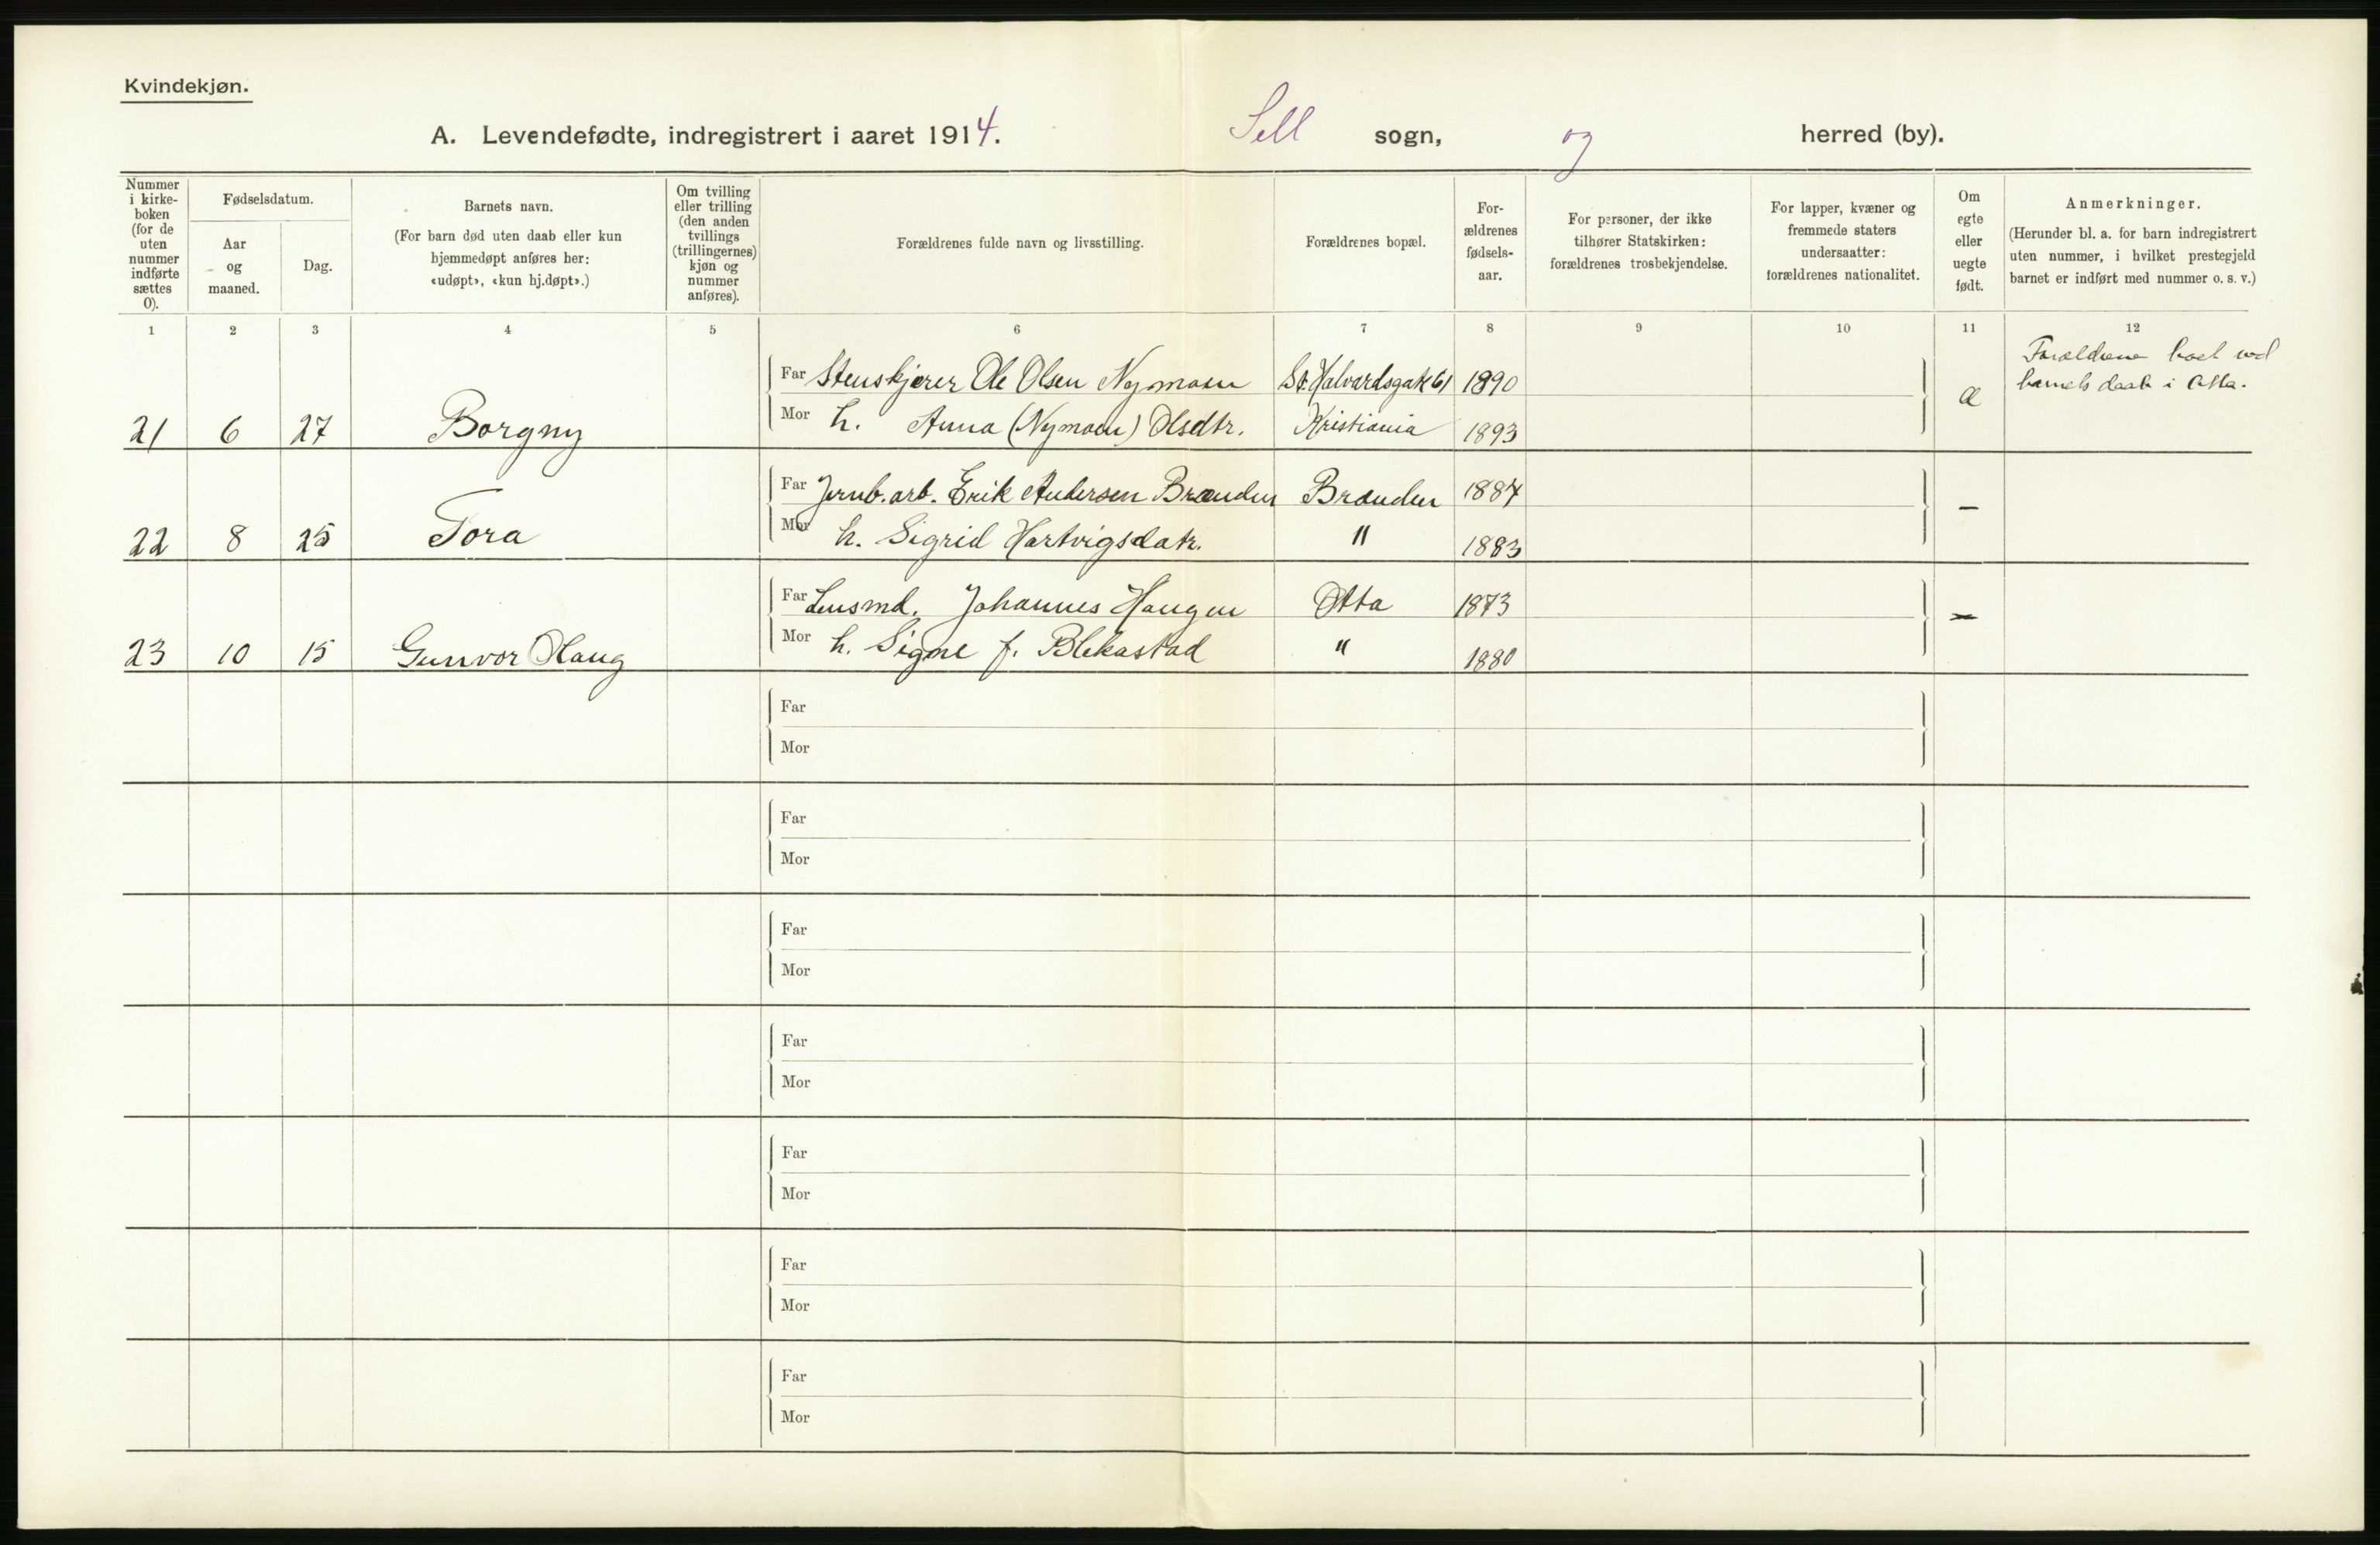 Kvindekjøn.
A. Levendefødte, indregistrert i aaret 1914. Sell sogn, og herred (by).
Nummer i kirke-boken (for de uten nummer indførte sættes 0).
Fødselsdatum.
Aar og maaned.
Dag.
Barnets navn.
(For barn død uten daab eller kun hjemmedøpt anføres her: «udøpt», «kun hj.døpt».)
Om tvilling eller trilling (den anden tvillings (trillingernes) kjøn og nummer anføres).
Forældrenes fulde navn og livsstilling.
Forældrenes bopæl.
For-ældrenes fødsels-aar.
For personer, der ikke tilhører Statskirken: forældrenes trosbekjendelse.
For lapper, kvæner og fremmede staters undersaatter: forældrenes nationalitet.
Om egte eller uegte født.
Anmerkninger.
(Herunder bl. a. for barn indregistrert uten nummer, i hvilket prestegjeld barnet er indført med nummer o. s. v.)
1 2 3 4 5 6 7 8 9 10 11 12
Far Stenskjærer Ole Olsen Nymoen St. Halvardsgate 61 1890
21 6 27 Borgny Mor h. Anna (Nymoen) Olsdtr. Kristiania 1893 æ
Forældrene boet ved
barnets daab i Otta.
Far Jernb.arb. Erik Andersen Brænden Brænden 1887
22 8 25 Tora Mor h. Sigrid Hartvigsdatr. " 1883 –
Far Lensmd. Johannes Haugen Otta 1873
23 10 15 Gunvor Haug Mor h. Signe f. Blekastad " 1880 –
Far
Mor
Far
Mor
Far
Mor
Far
Mor
Far
Mor
Far
Mor
Far
Mor